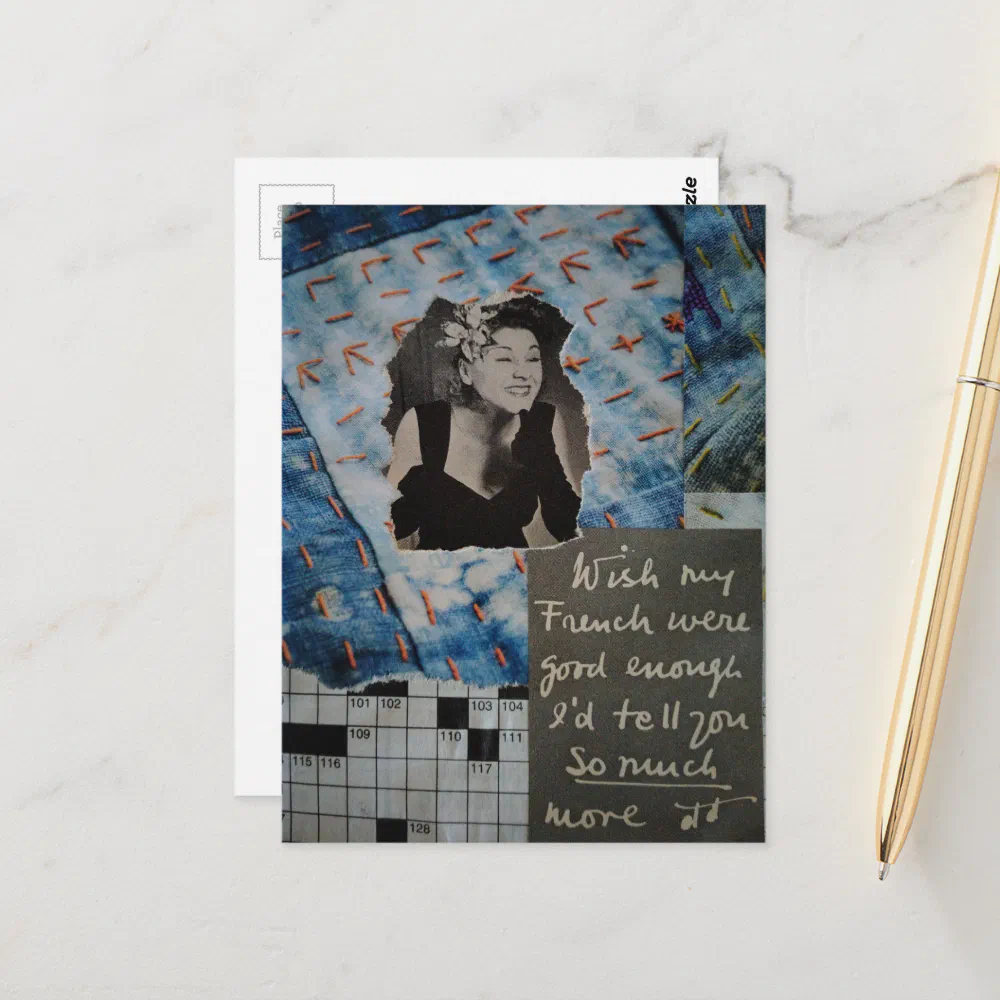 zzle
Place
Wish my
French were
good enough
I'd tell you
So much
more
101 102 103 104
109 110 111
115 116 117
128